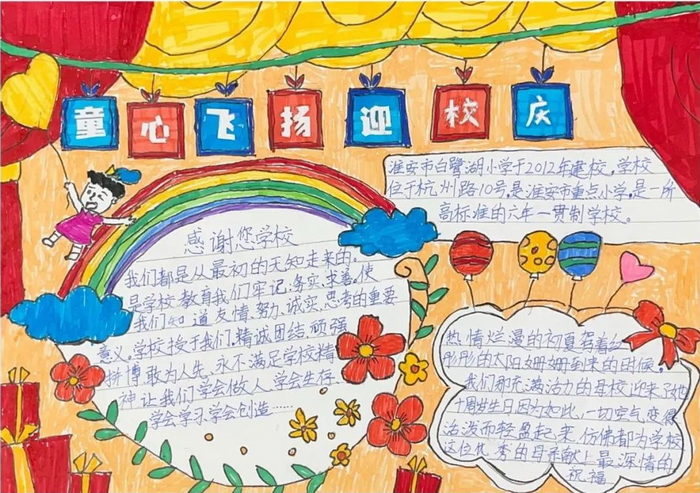 童心飞扬迎校庆
淮安市白鹭湖小学于2012年建校。学校
位于杭州路10号是淮安市重点小学。是一所
高标准的六年一贯制学校。
感谢您学校
我们都是从最初的无知走来的。
是学校教育我们牢记务实,求善。使
我们知道友情、努力、诚实、思考的重要
意义。学校授于我们精诚团结,顽强
拼博敢为人先,永不满足学校精
神让我们学会做人,学会生存
学会学习学会创造……
热情烂漫的初夏
彤彤的太阳姗姗到来的时候,
我们那充满活力的母校迎来了她
十周岁生日因为如此,一切空气变得
活泼而轻盈起来,仿佛都为学校
这位优秀的母亲献上最深情的
祝福